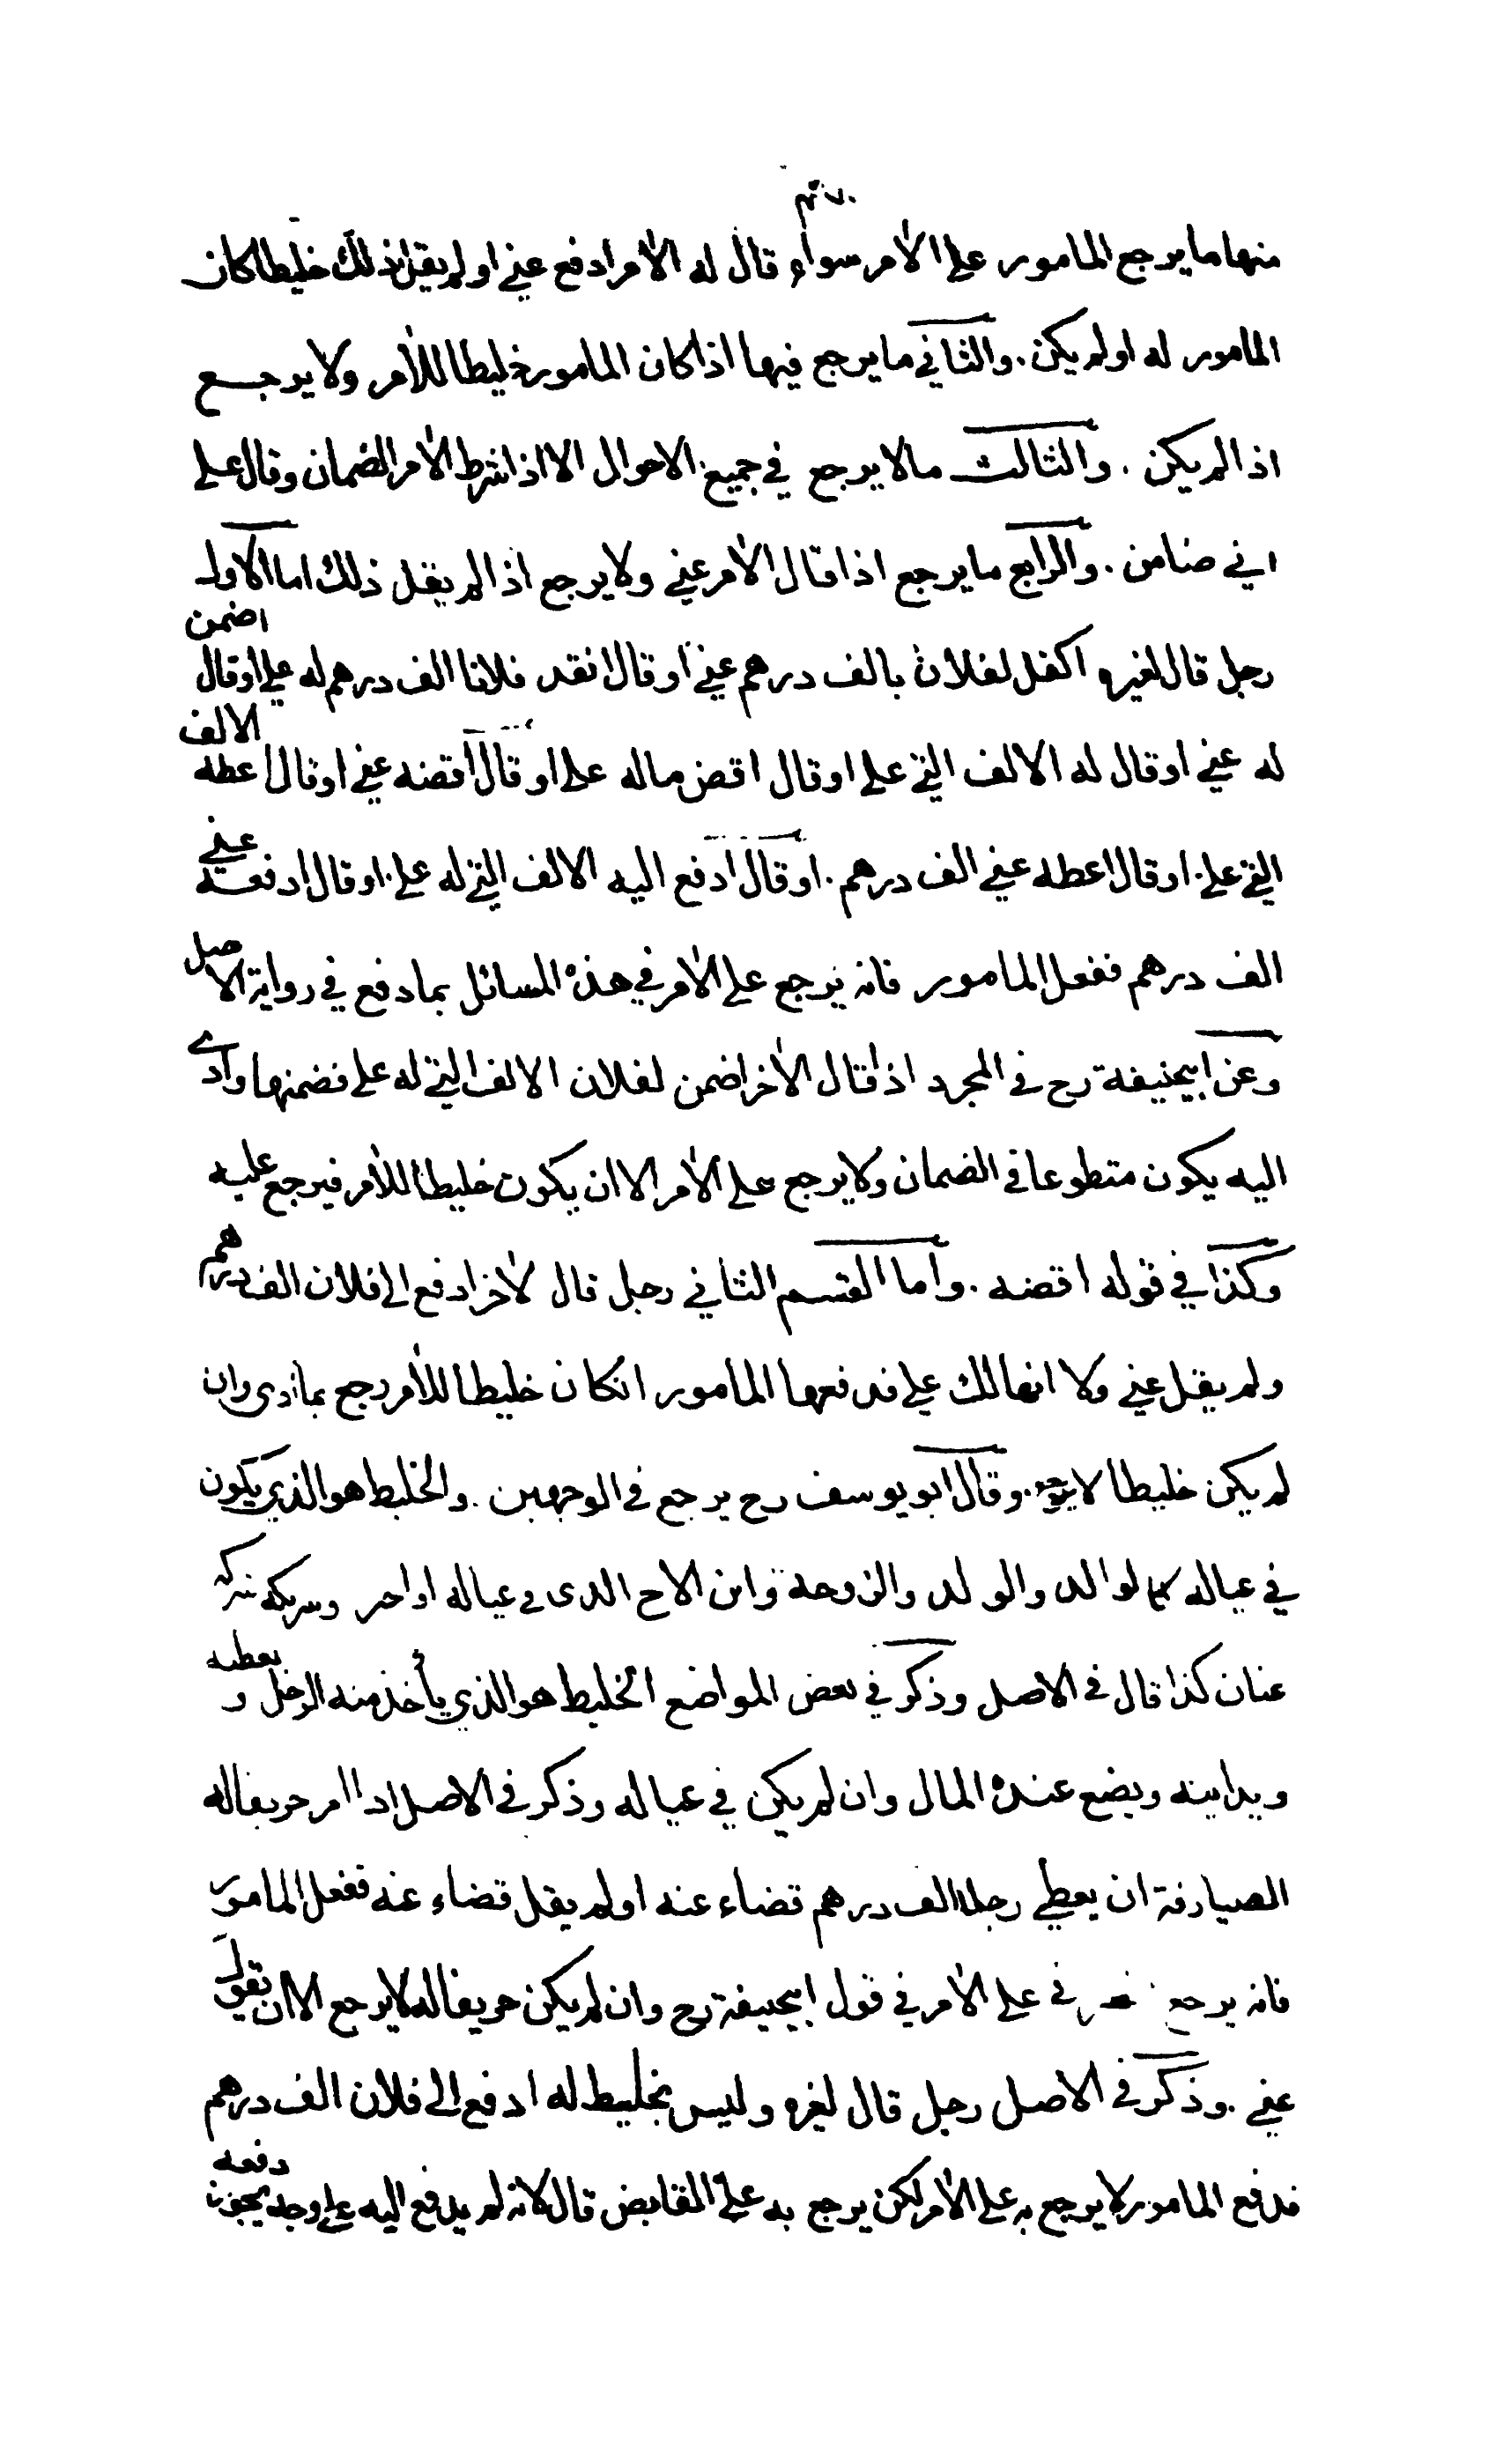 منها ما يرجع المامور على الآمر سواء قال له الآمر ادفع عني او لم يقل ذلك خليطا كان
المامور له او لم يكن . والثاني ما يرجع فيها اذا كان المامور خليطا للآمر ولا يرجع
اذا لم يكن . والثالث مالا يرجع في جميع الاحوال الا اذا شرط الآمر الضمان وقال على
اني ضامن . والرابع ما يرجع اذا قال الآمر عني ولا يرجع اذا لم يقل ذلك اما الاول
رجل قال لغيره اكفل لفلان بالف درهم عني او قال انقد فلانا الف درهم له علي او قال اضمن
له عني او قال له الالف التي علي او قال اقض ماله علي او قال اقضه عني او قال اعطه الالف
التي علي . او قال اعطه عني الف درهم . او قال ادفع اليه الالف التي له علي . او قال ادفعه عني
الف درهم ففعل المامور فانه يرجع على الآمر في هذه المسائل بما دفع في رواية الاصل
وعن ابيحنيفة رح في المجرد اذا قال لآخر اضمن لفلان الالف التي له علي فضمنها وادى
اليه يكون متطوعا في الضمان ولا يرجع على الآمر الا ان يكون خليطا للآمر فيرجع عليه
وكذا في قوله اقضه . واما القسم الثاني رجل قال لآخر ادفع الى فلان الف درهم
ولم يقل عني ولا انها لك علي فدفعها المامور انكان خليطا للآمر رجع بما ادى وان
لم يكن خليطا لا يرجع . وقال ابو يوسف رح يرجع في الوجهين . والخليط هو الذي يكون
في عياله كالوالد والولد والزوجة وابن الاخ الذى في عياله او اجير وشريكه شركة
عنان كذا قال في الاصل وذكر في بعض المواضع الخليط هو الذي يأخذ منه الرجل و يعطيه
ويداينه ويضع عنده المال وان لم يكن في عياله وذكر في الاصل اذا امر حريفا له
الصيارفة ان يعطي رجلا الف درهم قضاء عنه او لم يقل قضاء عنه ففعل المامور
فانه يرجع على الآمر في قول ابيحنيفة رح وان لم يكن حريفا له لا يرجع الا ان يقول
عني . وذكر في الاصل رجل قال لغيره وليس بخليط له ادفع الى فلان الف درهم
فدفع المامور لا يرجع به على الآمر لكن يرجع به على القابض قال لانه لم يدفع اليه على وجه يجوز دفعه